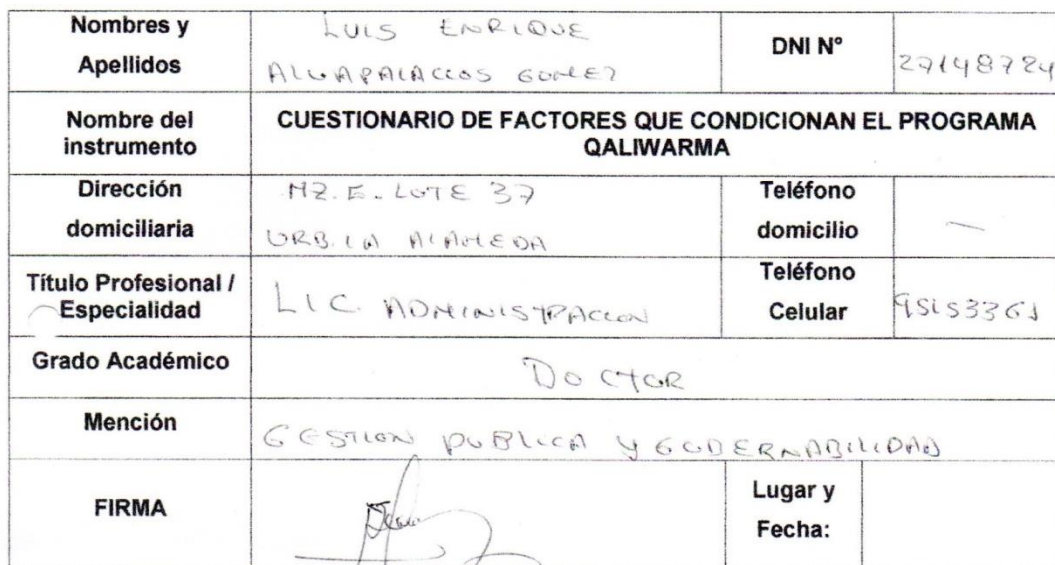 Nombres y
Apellidos
LUIS ENRIQUE
GOMEZ
DNI N°
Nombre del
instrumento
CUESTIONARIO DE FACTORES QUE CONDICIONAN EL PROGRAMA
QALIWARMA
Dirección
domiciliaria
MZ. E. LOTE 37
URB. LA ALAMEDA
Teléfono
domicilio
Título Profesional /
Especialidad
LIC. ADMINISTRACION
Teléfono
Celular
Grado Académico
DOCTOR
Mención
GESTION PUBLICA Y GOBERNABILIDAD
FIRMA
Lugar y
Fecha: